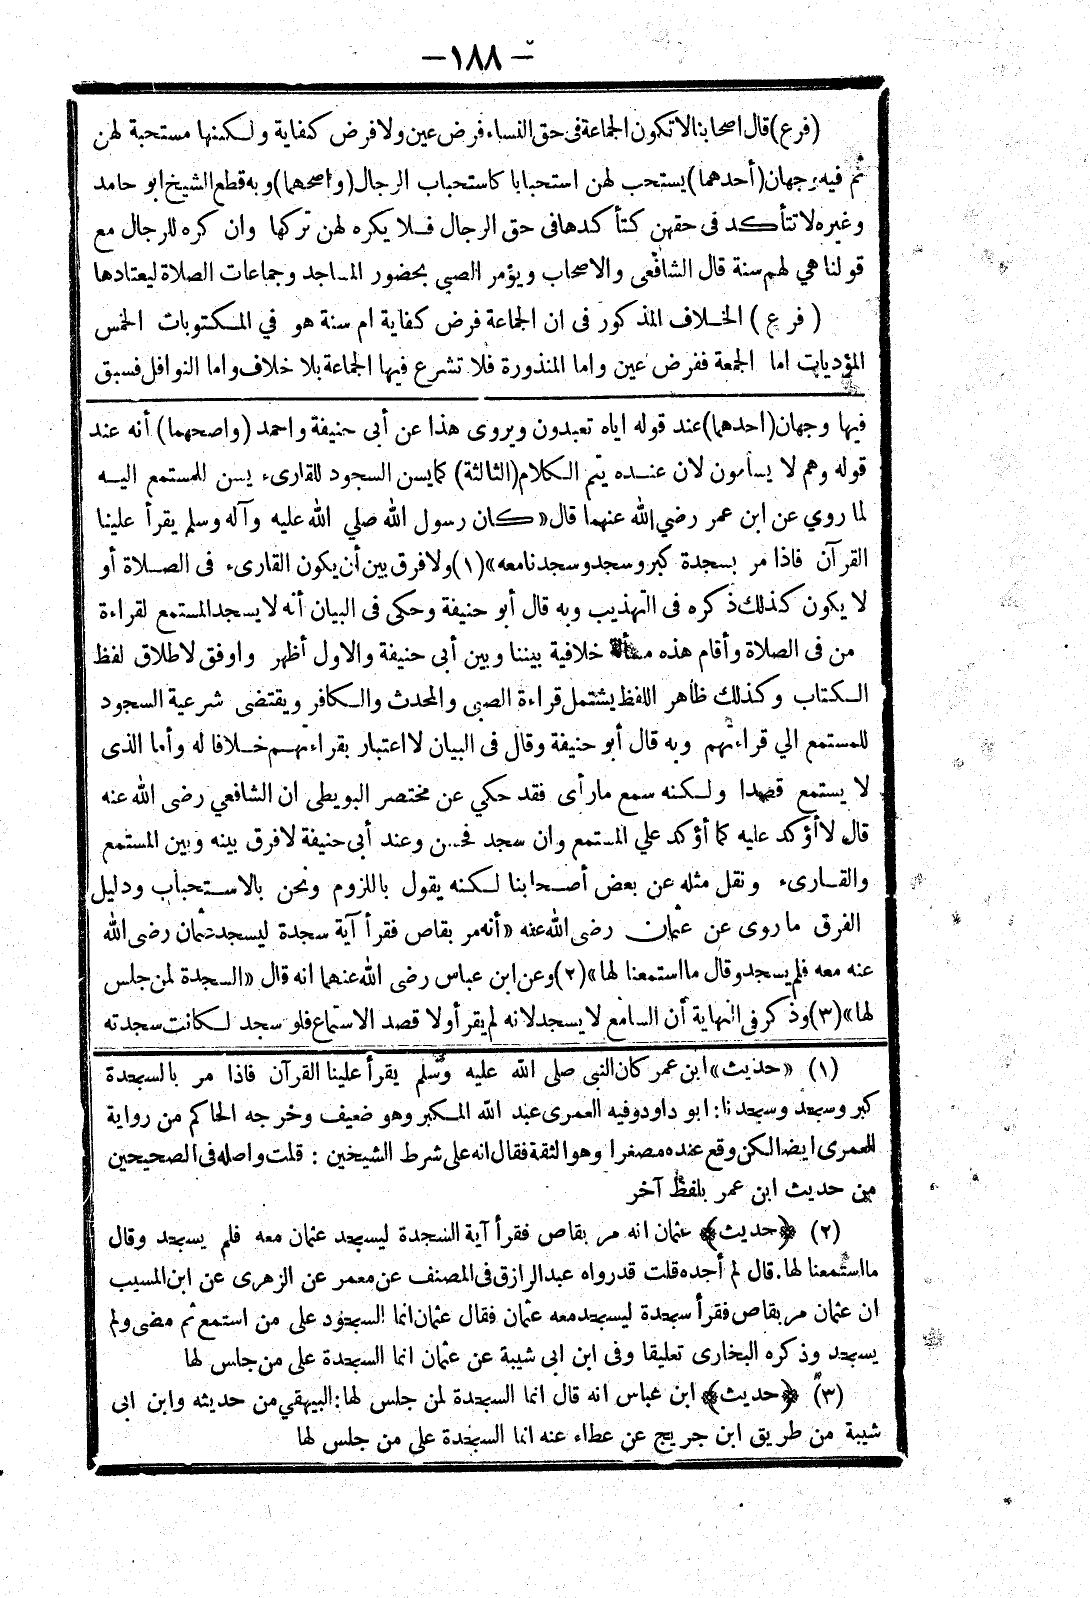 – ١٨٨ –
(فرع) قال اصحابنا لا تكون الجماعة فى حق النساء فرض عين ولا فرض كفاية ولكنها مستحبة لهن
ثم فيه وجهان (أحدهما) يستحب لهن استحبابا كاستحباب الرجال (واصحهما) وبه قطع الشيخ ابو حامد
وغيره لا تتأكد فى حقهن كتأكدها فى حق الرجال فلا يكره لهن تركها وان كره للرجال مع
قولنا هي لهم سنة قال الشافعى والاصحاب ويؤمر الصبي بحضور المساجد وجماعات الصلاة ليعتادها
(فرع) الخلاف المذكور فى ان الجماعة فرض كفاية ام سنة هو في المكتوبات الخمس
المؤديات اما الجمعة ففرض عين واما المنذورة فلا تشرع فيها الجماعة بلا خلاف واما النوافل فسبق
فيها وجهان (احدهما) عند قوله اياه تعبدون ويروى هذا عن أبى حنيفة واحمد (واصحهما) أنه عند
قوله وهم لا يسأمون لان عنده يتم الكلام (الثالثة) كما يسن السجود للقارىء يسن للمستمع اليه
لما روي عن ابن عمر رضي الله عنهما قال «كان رسول الله صلي الله عليه وآله وسلم يقرأ علينا
القرآن فاذا مر بسجدة كبر وسجد وسجدنا معه» (١) ولا فرق بين أن يكون القارىء فى الصلاة أو
لا يكون كذلك ذكره فى التهذيب وبه قال أبو حنيفة وحكى فى البيان أنه لا يسجد المستمع لقراءة
من فى الصلاة وأقام هذه مسألة خلافية بيننا وبين أبى حنيفة والاول أظهر واوفق لاطلاق لفظ
الكتاب وكذلك ظاهر اللفظ يشتمل قراءة الصبى والمحدث والكافر ويقتضى شرعية السجود
للمستمع الي قراءتهم وبه قال أبو حنيفة وقال فى البيان لا اعتبار بقراءتهم خلافا له وأما الذى
لا يستمع قصدا ولكنه سمع مارأى فقد حكي عن مختصر البويطى ان الشافعي رضى الله عنه
قال لا أؤكد عليه كما أؤكد علي المستمع وان سجد فحسن وعند أبى حنيفة لا فرق بينه وبين المستمع
والقارىء ونقل مثله عن بعض أصحابنا لكنه يقول باللزوم ونحن بالاستحباب ودليل
الفرق ما روى عن عثمان رضى الله عنه «أنه مر بقاص فقرأ آية سجدة ليسجد عثمان رضى الله
عنه معه فلم يسجد وقال ما استمعنا لها» (٢) وعن ابن عباس رضى الله عنهما انه قال «السجدة لمن جلس
لها» (٣) وذكر فى النهاية أن السامع لا يسجد لانه لم يقرأ ولا قصد الاستماع فلو سجد لكانت سجدته
(١) «حديث» ابن عمر كان النبى صلى الله عليه وسلم يقرأ علينا القرآن فاذا مر بالسجدة
كبر وسجد وسجدنا: ابو داود وفيه العمرى عبد الله المكبر وهو ضعيف وخرجه الحاكم من رواية
العمرى ايضا لكن وقع عنده مصغرا وهو الثقة فقال انه على شرط الشيخين : قلت واصله فى الصحيحين
من حديث ابن عمر بلفظ آخر
(٢) ﴿حديث﴾ عثمان انه مر بقاص فقرأ آية السجدة ليسجد عثمان معه فلم يسجد وقال
ما استمعنا لها. قال لم أجده قلت قد رواه عبد الرازق فى المصنف عن معمر عن الزهرى عن ابن المسيب
ان عثمان مر بقاص فقرأ سجدة ليسجد معه عثمان فقال عثمان انما السجود على من استمع ثم مضى ولم
يسجد وذكره البخارى تعليقا وفى ابن ابى شيبة عن عثمان انما السجدة على من جلس لها
(٣) ﴿حديث﴾ ابن عباس انه قال انما السجدة لمن جلس لها: البيهقي من حديثه وابن ابى
شيبة من طريق ابن جريج عن عطاء عنه انما السجدة على من جلس لها